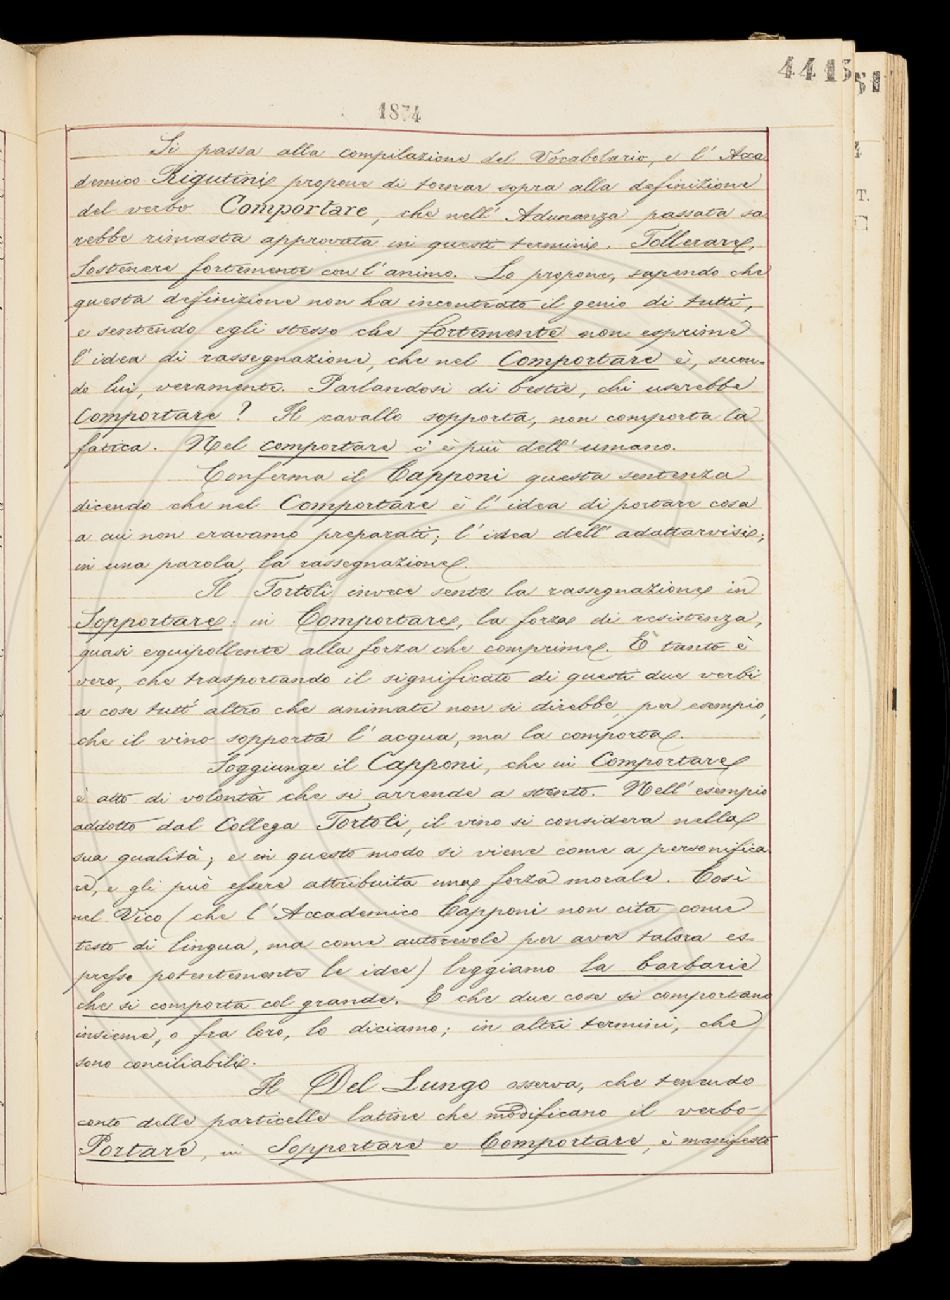 441
1874
Si passa alla compilazione del Vocabolario, e l' Acca
demico Rigutini propone di tornar sopra alla definizione
del verbo Comportare, che nell' Adunanza passata sa
rebbe rimasta approvata in questi termini. Tollerare,
Sostenere fortemente con l' animo. Lo propone, sapendo che
questa definizione non ha incontrato il genio di tutti,
e sentendo egli stesso che fortemente non esprime
l' idea di rassegnazione, che nel Comportare è, secon-
do lui, veramente. Parlandosi di bestie, chi userebbe
Comportare? Il cavallo sopporta, non comporta la
fatica. Nel comportare c' è più dell' umano.
Conferma il Capponi questa sentenza
dicendo che nel Comportare è l' idea di portare cosa
a cui non eravamo preparati; l' idea dell' adattarvisi;
in una parola, la rassegnazione.
Il Tortoli invece sente la rassegnazione in
Sopportare: in Comportare, la forza di resistenza,
quasi equipollente alla forza che comprime. È tanto è
vero, che trasportando il significato di questi due verbi
a cose tutt' altro che animate non si direbbe, per esempio,
che il vino sopporta l' acqua, ma la comporta.
Soggiunge il Capponi, che in Comportare
è atto di volontà che si arrende a stento. Nell' esempio
addotto dal Collega Tortoli, il vino si considera nella
sua qualità; e in questo modo si viene come a personifica
re, e gli può essere attribuita una forza morale. Così
nel Vico (che l' Accademico Capponi non cita come
testo di lingua, ma come autorevole per aver talora es-
presse potentemente le idee) leggiamo la barbarie
che si comporta col grande. E che due cose si comportano
insieme, o fra loro, lo diciamo; in altri termini, che
sono conciliabili.
Il Del Lungo osserva, che tenendo
conto delle particelle latine che modificano il verbo
Portare, in Sopportare e Comportare, è manifesto